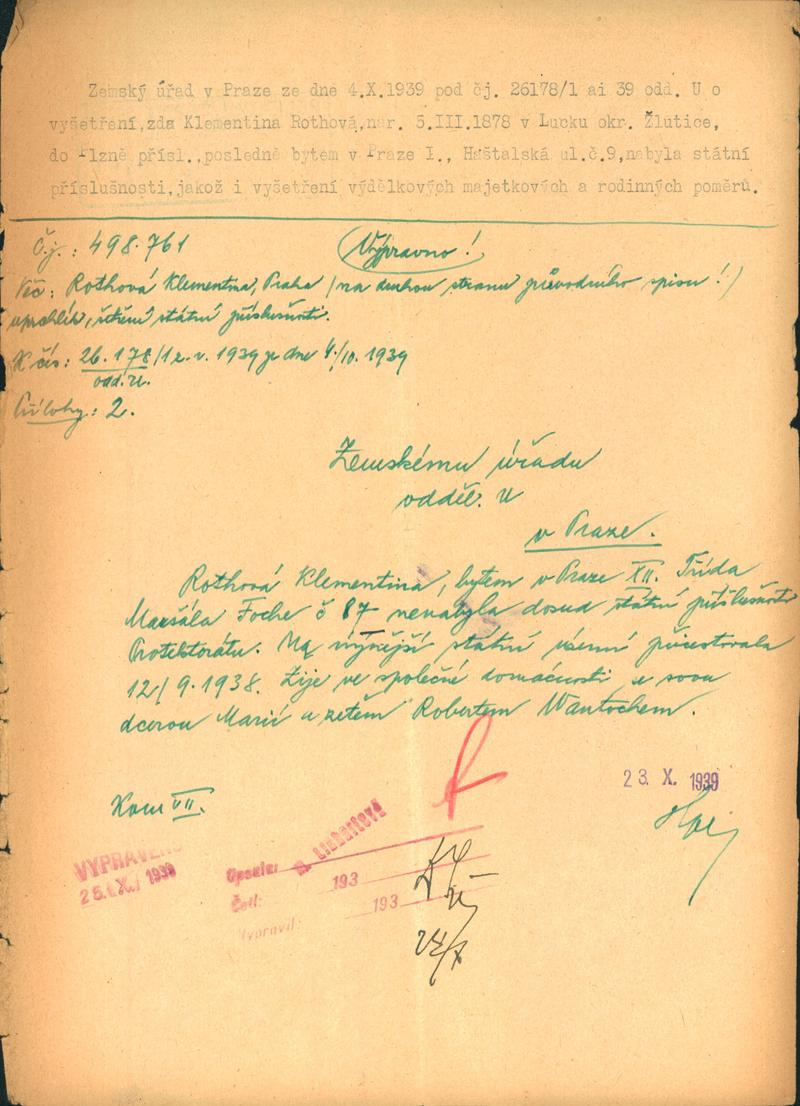 Zemský úřad v Praze ze dne 4.X.1939 pod čj. 26178/1 ai 39 odd. U o
vyšetření,zda Klementina Rothová,nar. 5.III.1878 v Lucku okr. Žlutice,
do Plzně přísl.,posledně bytem v Praze I., Haštalská ul.č.9,nabyla státní
příslušnosti,jakož i vyšetření výdělkových majetkových a rodinných poměrů.
Č.j.: 498.761 Výpravno!
Věc: Rothová Klementina, Praha (na druhou stranu průvodního spisu!)
uprchlík, šetření státní příslušnosti.
K čís: 26.178/1 1939 ze dne 4./10. 1939
odd. U.
Přílohy: 2.
Zemskému úřadu
odděl. U
v Praze.
Rothová Klementina, bytem v Praze XII. Třída
Maršála Foche č 87 nenabyla dosud státní příslušnosti
Protektorátu. Na nynější státní území přicestovala
12/9.1938. Žije ve společné domácnosti se svou
dcerou Marií a zetěm Robertem Wantochem.
23. X. 1939
Kom VII.
VYPRAVENO
25. X. 1939
Opsala:
Četl: 193
Vypravil: 193
24/X